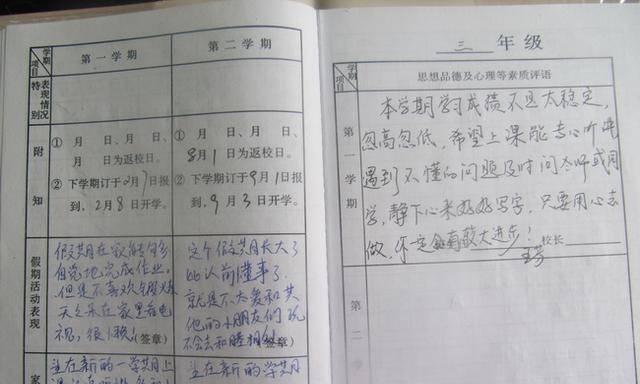 学期
项目
第一学期
第二学期
特别
表现情况
附
知
① 月 日、月 日、
月 日为返校日。
② 下学期订于2月7日报
到、2月8日开学。
① 月 日、月 日、
8月1日为返校日。
② 下学期订于9月1日报
到,9月3日开学。
假期活动表现
假期在家能够
自觉地完成作业。
但是不喜欢
天天呆在家里看电
视,很懒!(签章)
这个假期长大了
比以前懂事了
就是不太爱和其
他的小朋友们玩
(签章)
家
在新的一学期上
在新的学期
三年级
学期
项目
思想品德及心理等素质评语
第一学期
本学期学习成绩不是太稳定,
忽高忽低,希望上课能专心听讲
遇到不懂的问题及时问老师或同
学,静下心来好好写字,只要用心去
做,一定会有较大进步!
校长
第二